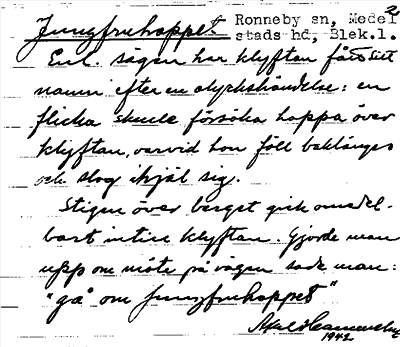 2
Jungfruhoppet Ronneby sn, Medel
stads hd, Blek.l.
Enl. sägen har klyftan fått sitt
namn efter en olyckshändelse: en
flicka skulle försöka hoppa över
klyftan, varvid hon föll baklänges
och slog ihjäl sig.
Stigen över berget gick omedel-
bart intill klyftan. Gjorde man
upp om möte på vägen sade man:
"gå om Jungfruhoppet"
1942